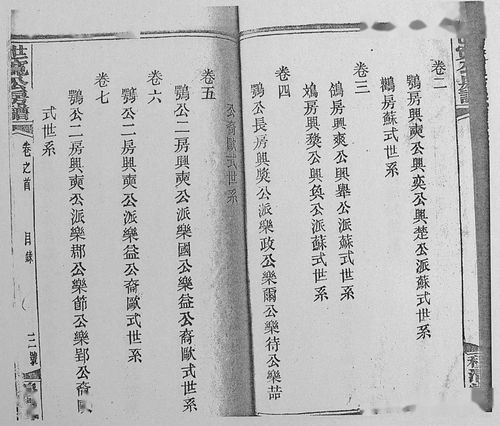 卷二
鶼房興奭公興奕公興楚公派蘇式世系
鷫房蘇式世系
卷三
鴿房興爽公興舉公派蘇式世系
鴆房興爕公興奐公派蘇式世系
卷四
鶚公長房興奬公派樂政公樂爾公樂待公樂喆
公裔歐式世系
卷五
鶚公二房興奭公派樂國公樂益公裔歐式世系
卷六
鶚公二房興奭公派樂益公裔歐式世系
卷七
鶚公二房興奭公派樂郡公樂節公樂郢公裔
式世系
世寬公房譜
卷之首
目錄
三號